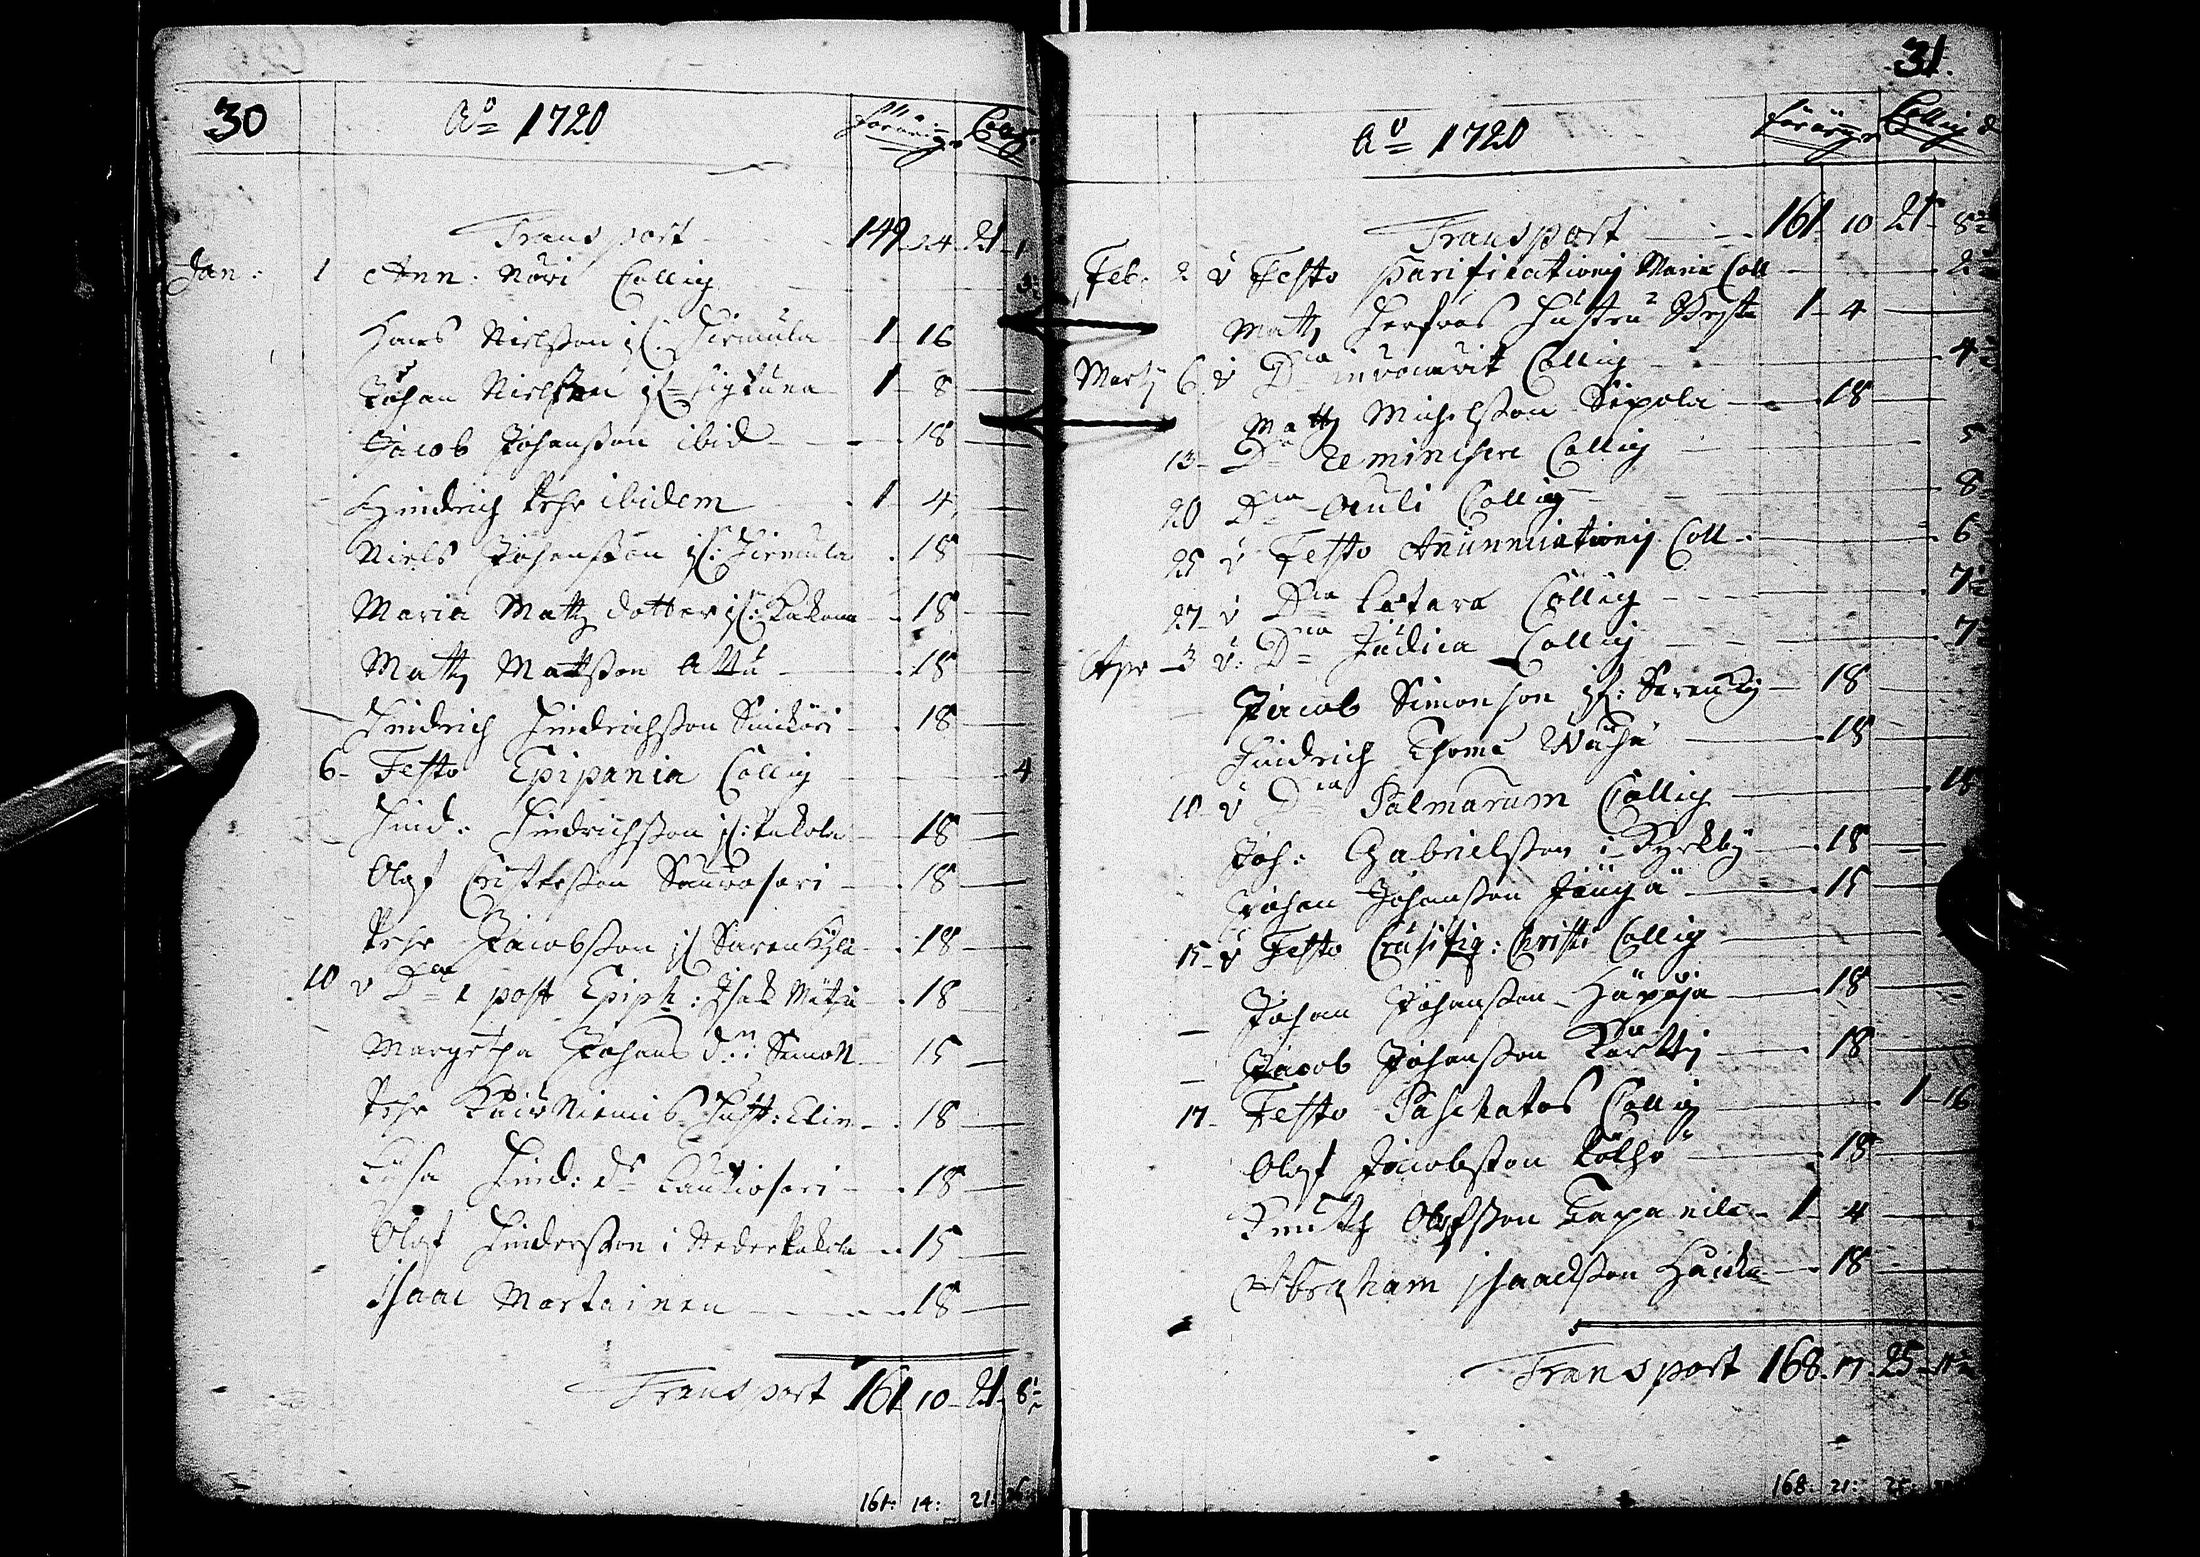 30
Ao 1720
Coll
Transport 149 24 21 1
Jan: 1 Ann: Novi Collig
Hans Nielsson if: Hirmula 1 16
Johan Nielsson if Sigkuna 1 8
Jacob Johansson ibid 18
Hindrich Pehr ibidem 1 4
Niels Johansson if: Hirmula 18
Maria Matz dotter if: Kakona 18
Matz Mattsson Attu 18
Hindrich Hindrichsson 18
6 Festo Epipania Collig 4
Hind: Hindrichsson if: Kakola 18
Olof Cristersson Saurasari 18
Pehr Jacobsson if Sarenkyla 18
10 v Dca 1 post Epiph: Isak Mätsä 18
Margetha Johans dr: Simon 15
Pehr Kuivniemis Hust: Elin 18
Lisa Hind: dr Lautiosari 18
Olof Hindersson i Nederkakola 15
Isaac Martainen 18
Transport 161 10 21 8½
161: 14: 21:
31.
Ao 1720
Förähr Collig
Transport 161 10 21 8½
Feb: 2 v Festo Purificationis Mariæ Coll 2½
Matz Hustru 1 4
Martj 6 v Dca invocavit Collig 4½
Matz Michelsson Sipola 18
13 Da reminisere Collig 5
20 Dca oculi Collig 8
25 v Festo Anunnciationis Coll: 6
27 v Dca Lætare Collig 7½
Apr 3 v: Dca Judica Collig 7½
Jacob Simonson if: Sarenky 18
Hindrich Thoma 18
10 v Dca Palmarum Collig
Joh: Gabrielsson i Kyrkby 18
Johan Johansson 15
15 v Festo Crusifig: Christi Collig
Johan Johansson Häpoja 18
Jacob Johansson Kartti 18
17 Festo Paschatos Collig 1 16
Olof Jacobsson Kolho 18
Olofsson Tapanila 1 4
Abraham Isaacksson Huikka 18
Transport 168 17 25
168: 21: 25: